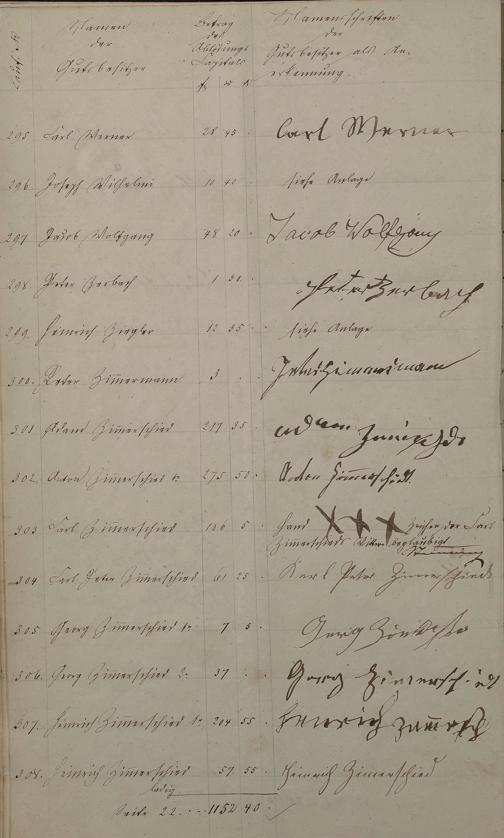 Lauf. N. Namen der Gutsbesitzer Betrag des Ablösungs Capitals Namensschriften der Gutsbesitzer als Anerkennung.
f x
295 Carl Werner 28 45 Carl Werner
296 Joseph Wilhelmi 10 40 siehe Anlage
297 Jacob Wolfgang 48 20 Jacob Wolfgang
298 Peter Zerbach 1 Peter Zerbach
299 Heinrich Ziegler 12 35 siehe Anlage
300. Peter Zimmermann 3 Peter Zimmermann
301 Adam Zimmerschied 217 35 Adam
302 Anton Zimmerschied 275 50 Anton Zimmerschied
303 Carl Zimmerschied 146 5 Hand XXX Zeichen der Carl
Zimmerschieds Wittwe beglaubigt
304 Carl Peter Zimmerschied 61 25 Karl Peter Zimerschied
305 Georg Zimerschied 1r 7 5 Georg
306. Georg Zimerschied 2r 37 Georg Zimerschied
307. Heinrich Zimmerschied 1r 204 55 Henrich
308. Heinrich Zimmerschied 57 55 Heinrich Zimerschied
ledig
Seite 22. 1152 40